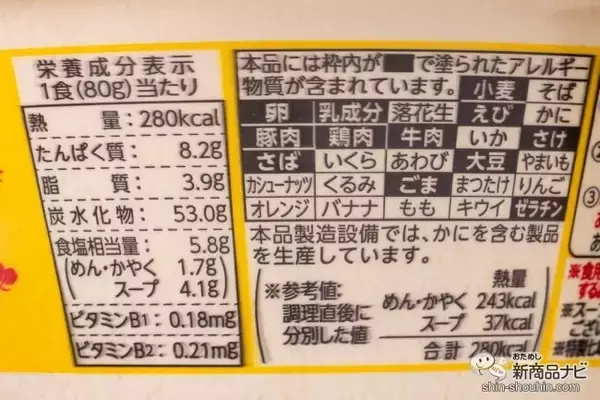 栄養成分表示
1食(80g)当たり
熱量:280kcal
たんぱく質: 8.2g
脂質: 3.9g
炭水化物: 53.0g
食塩相当量: 5.8g
(めん・かやく 1.7g
スープ 4.1g)
ビタミンB1: 0.18mg
ビタミンB2: 0.21mg
本品には枠内が で塗られたアレルギー
物質が含まれています。 小麦 そば
卵 乳成分 落花生 えび かに
豚肉 鶏肉 牛肉 いか さけ
さば いくら あわび 大豆 やまいも
カシューナッツ くるみ ごま まつたけ りんご
オレンジ バナナ もも キウイ ゼラチン
本品製造設備では、かにを含む製品
を生産しています。
※参考値:
調理直後に
分別した値
熱量
めん・かやく 243kcal
スープ 37kcal
合計 280kcal
おためし
新商品ナビ
shin-shouhin.com